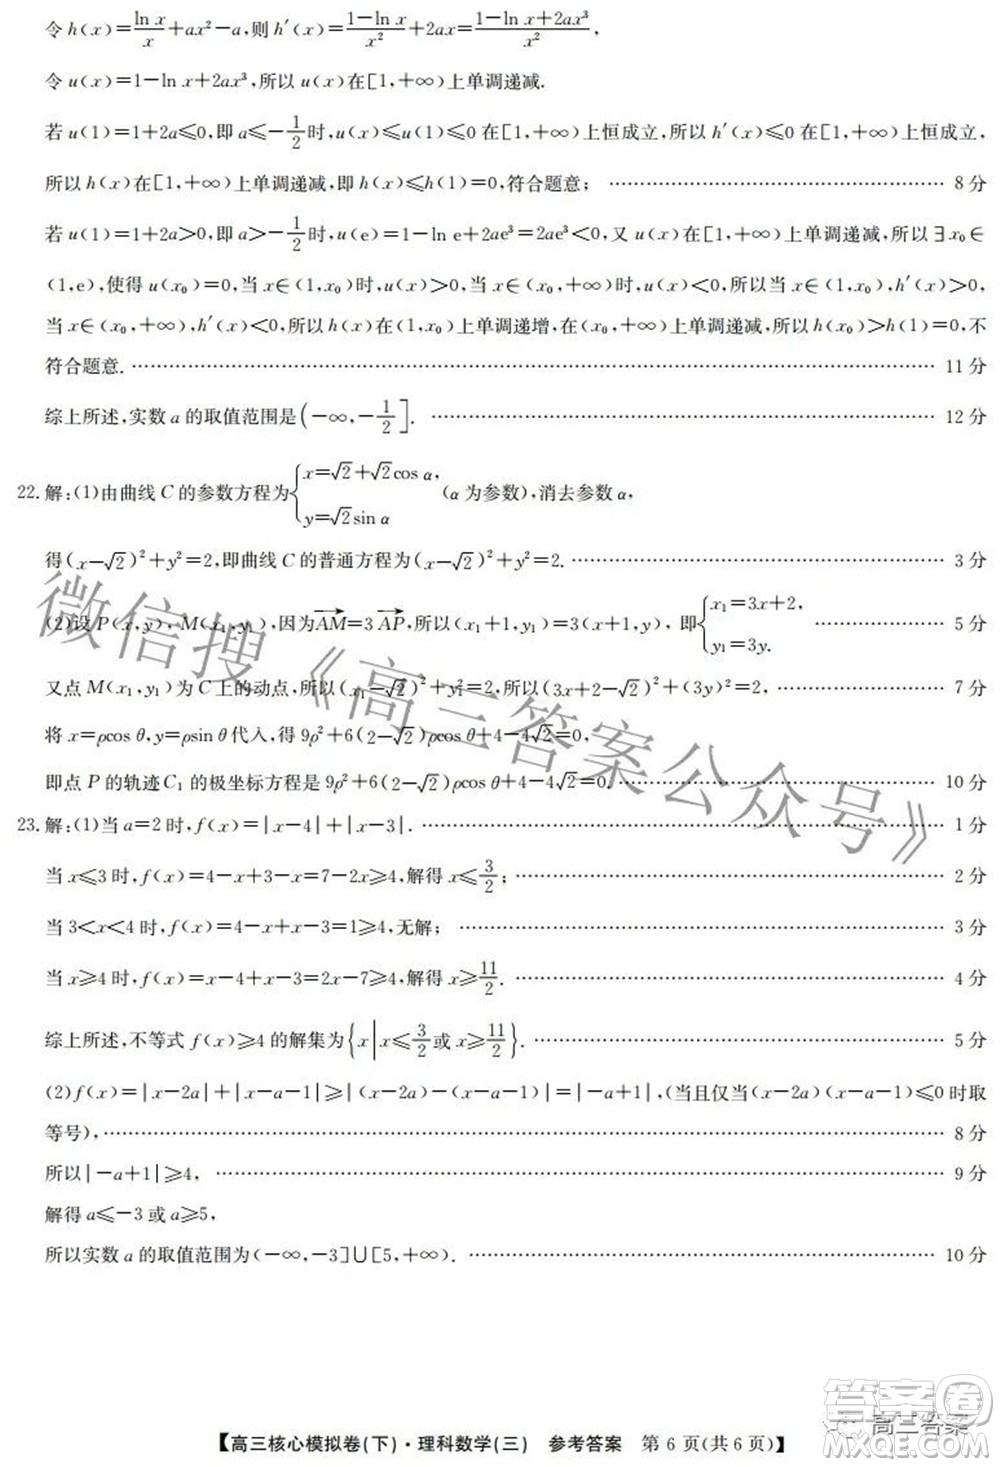 令 h(x)=ln x/x+ax²-a,则 h′(x)=(1-ln x)/x²+2ax=(1-ln x+2ax³)/x²,
令 u(x)=1-ln x+2ax³,所以 u(x)在[1,+∞)上单调递减.
若 u(1)=1+2a≤0,即 a≤-1/2时,u(x)≤u(1)≤0 在[1,+∞)上恒成立,所以 h′(x)≤0 在[1,+∞)上恒成立,
所以 h(x)在[1,+∞)上单调递减,即 h(x)≤h(1)=0,符合题意; …… 8 分
若 u(1)=1+2a>0,即 a>-1/2时,u(e)=1-ln e+2ae³=2ae³<0,又 u(x)在[1,+∞)上单调递减,所以∃x₀∈
(1,e),使得 u(x₀)=0,当 x∈(1,x₀)时,u(x)>0,当 x∈(x₀,+∞)时,u(x)<0,所以当 x∈(1,x₀),h′(x)>0,
当 x∈(x₀,+∞),h′(x)<0,所以 h(x)在(1,x₀)上单调递增,在(x₀,+∞)上单调递减,所以 h(x₀)>h(1)=0,不
符合题意. …… 11 分
综上所述,实数 a 的取值范围是(-∞,-1/2]. …… 12 分
22. 解:(1)由曲线 C 的参数方程为{x=√2+√2cos α, y=√2sin α (α 为参数),消去参数 α,
得(x-√2)²+y²=2,即曲线 C 的普通方程为(x-√2)²+y²=2. …… 3 分
(2)设 P(x,y),M(x₁,y₁),因为AM=3AP,所以(x₁+1,y₁)=3(x+1,y),即{x₁=3x+2, y₁=3y. …… 5 分
又点 M(x₁,y₁)为 C 上的动点,所以(x₁-√2)²+y₁²=2,所以(3x+2-√2)²+(3y)²=2, …… 7 分
将 x=ρcos θ,y=ρsin θ代入,得 9ρ²+6(2-√2)ρcos θ+4-4√2=0,
即点 P 的轨迹 C₁ 的极坐标方程是 9ρ²+6(2-√2)ρcos θ+4-4√2=0. …… 10 分
23. 解:(1)当 a=2 时,f(x)=|x-4|+|x-3|. …… 1 分
当 x≤3 时,f(x)=4-x+3-x=7-2x≥4,解得 x≤3/2; …… 2 分
当 3<x<4 时,f(x)=4-x+x-3=1≥4,无解; …… 3 分
当 x≥4 时,f(x)=x-4+x-3=2x-7≥4,解得 x≥11/2. …… 4 分
综上所述,不等式 f(x)≥4 的解集为{x|x≤3/2或 x≥11/2}. …… 5 分
(2)f(x)=|x-2a|+|x-a-1|≥|(x-2a)-(x-a-1)|=|-a+1|,(当且仅当(x-2a)(x-a-1)≤0 时取
等号), …… 8 分
所以|-a+1|≥4, …… 9 分
解得 a≤-3 或 a≥5,
所以实数 a 的取值范围为(-∞,-3]∪[5,+∞). …… 10 分
微信搜《高三答案公众号》
答案卷
高三答案
【高三核心模拟卷(下)·理科数学(三) 参考答案 第 6 页(共 6 页)】
MXQE.COM